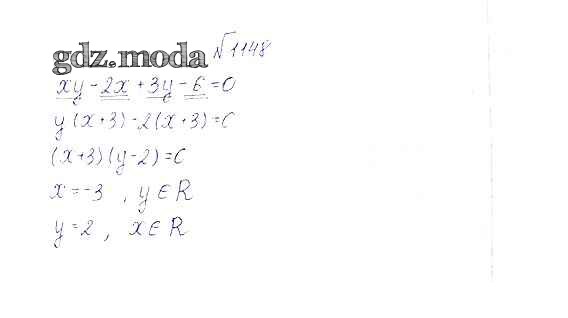 gdz.moda №1148
xy - 2x + 3y - 6 = 0
y(x+3) - 2(x+3) = 0
(x+3)(y-2) = 0
x = -3 , y ∈ R
y = 2 , x ∈ R